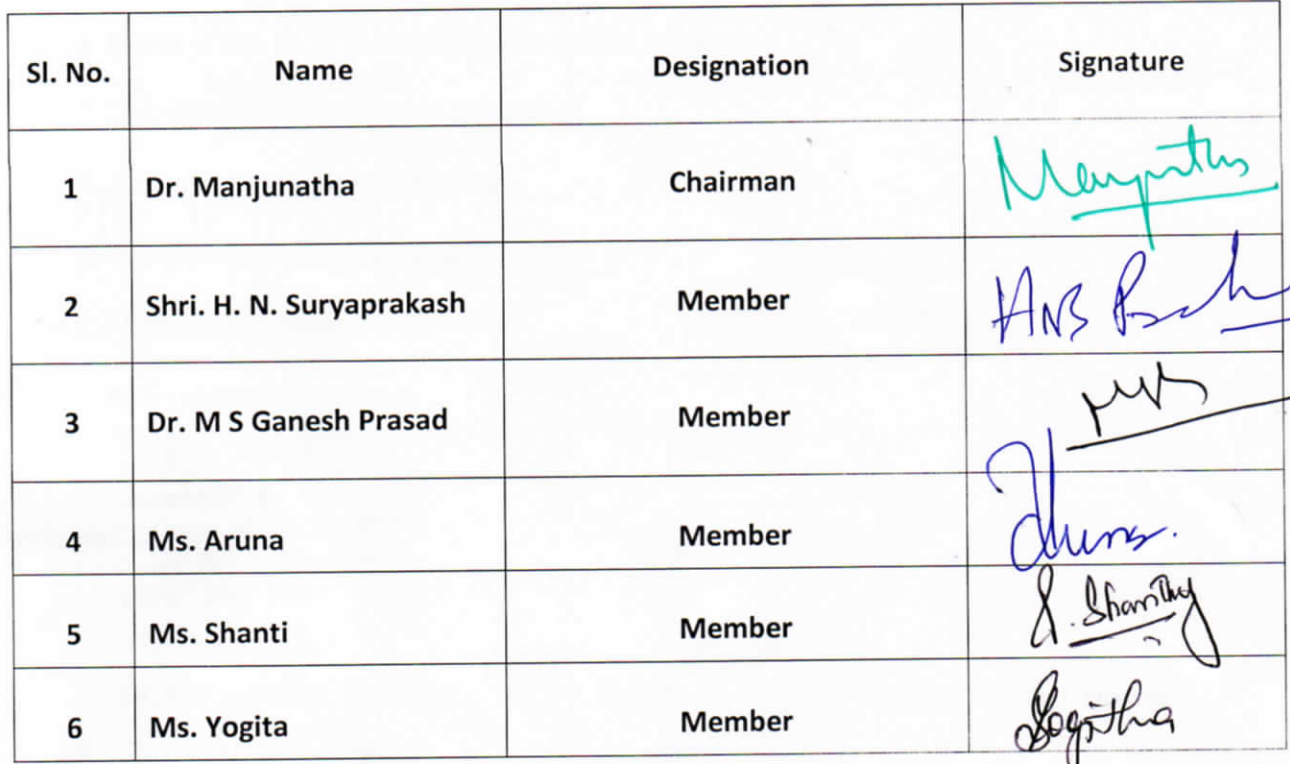 Sl. No. Name Designation Signature
1 Dr. Manjunatha Chairman Manjuntha
2 Shri. H. N. Suryaprakash Member HNS
3 Dr. M S Ganesh Prasad Member
4 Ms. Aruna Member Aruna.
5 Ms. Shanti Member S. Shanthy
6 Ms. Yogita Member Yogitha